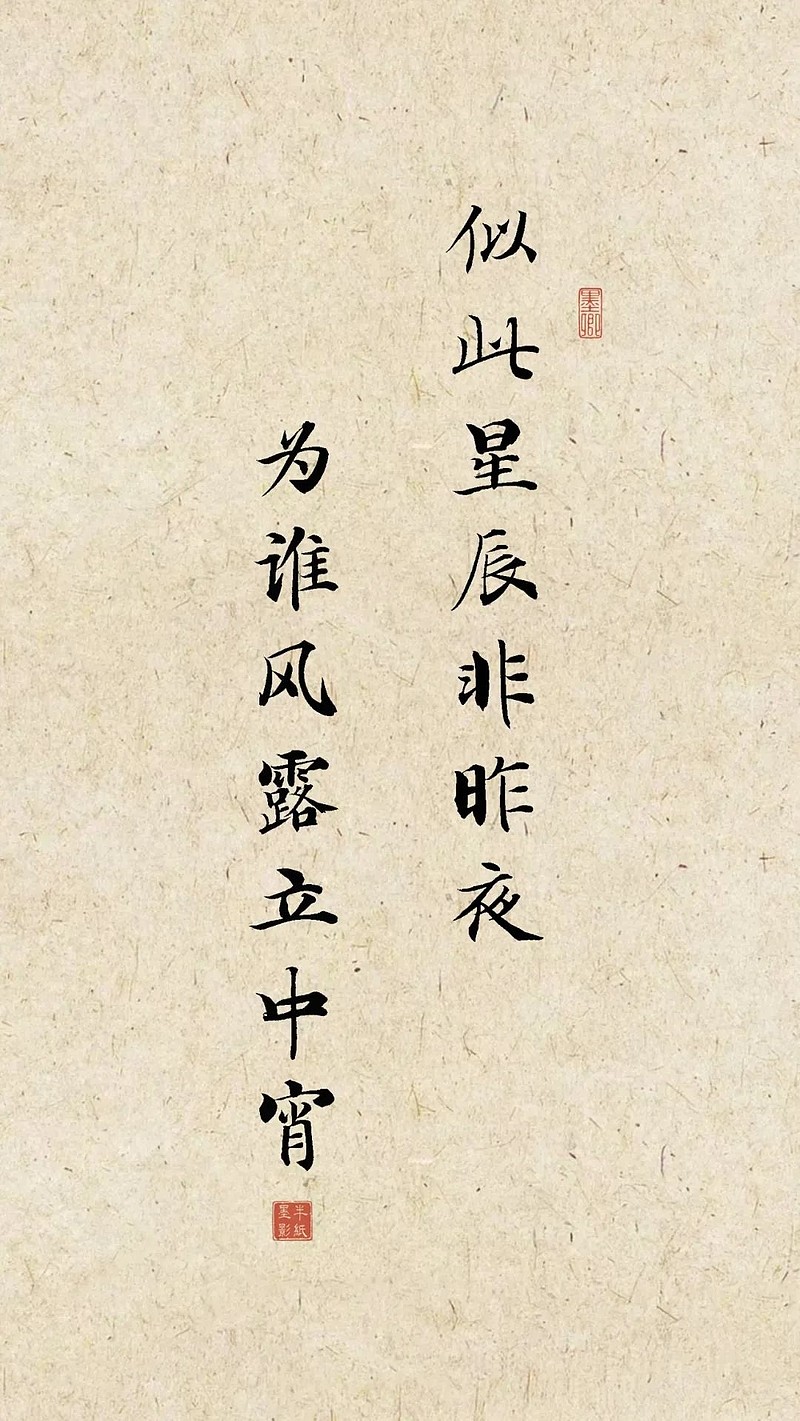 似此星辰非昨夜
为谁风露立中宵
墨卿
半纸墨影